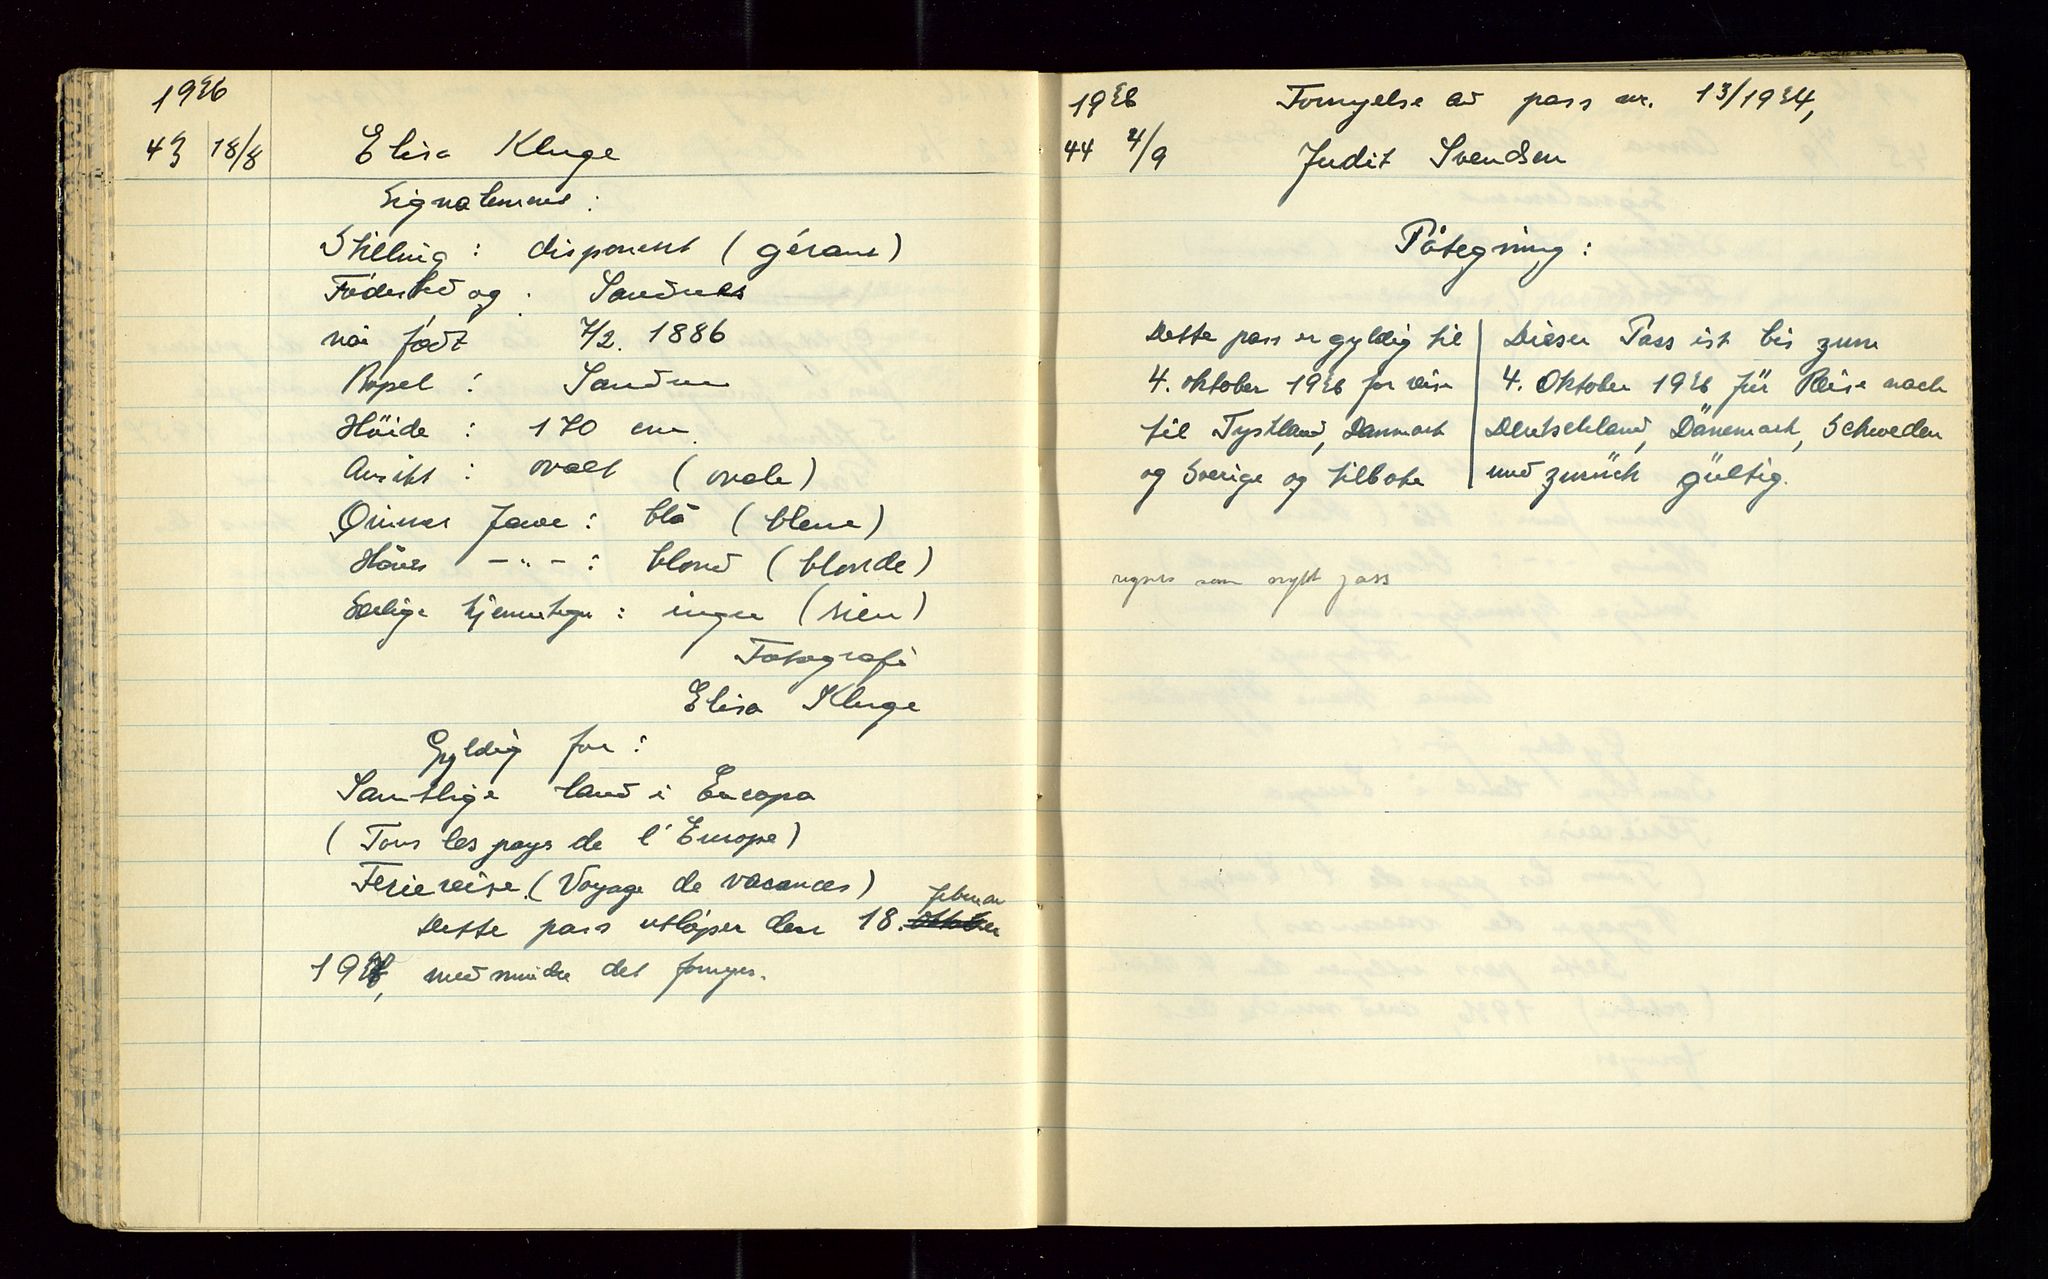 1936
43 18/8 Elisa Kluge
Signalement:
Stilling: disponent (gérant)
Fødested og : Sandnes
når født 7/2. 1886
Bopel: Sandnes
Høide: 170 cm.
Ansikt: ovalt (ovale)
Øinnes farve: blå (bleue)
Hårets -"-: blond (blonde)
Særlige kjennetegn: ingen (rien)
Fotografi
Elisa Kluge
Gyldig for:
Samtlige land i Europa
(Tous les pays de l'Europe)
Feriereise (Voyage de vacances)
februar
Dette pass utløper den 18. oktober
1937, med mindre det fornyes.
1936 Fornyelse av pass nr. 13/1934,
44 4/9 Judit Svendsen
Påtegning:
Dette pass er gyldig til
4. oktober 1936 for reise
til Tyskland, Danmark
og Sverige og tilbake
Dieser Pass ist bis zum
4. Oktober 1936 für Reise nach
Deutschland, Dänemark, Schweden
und zurück gültig.
regnes som nytt pass